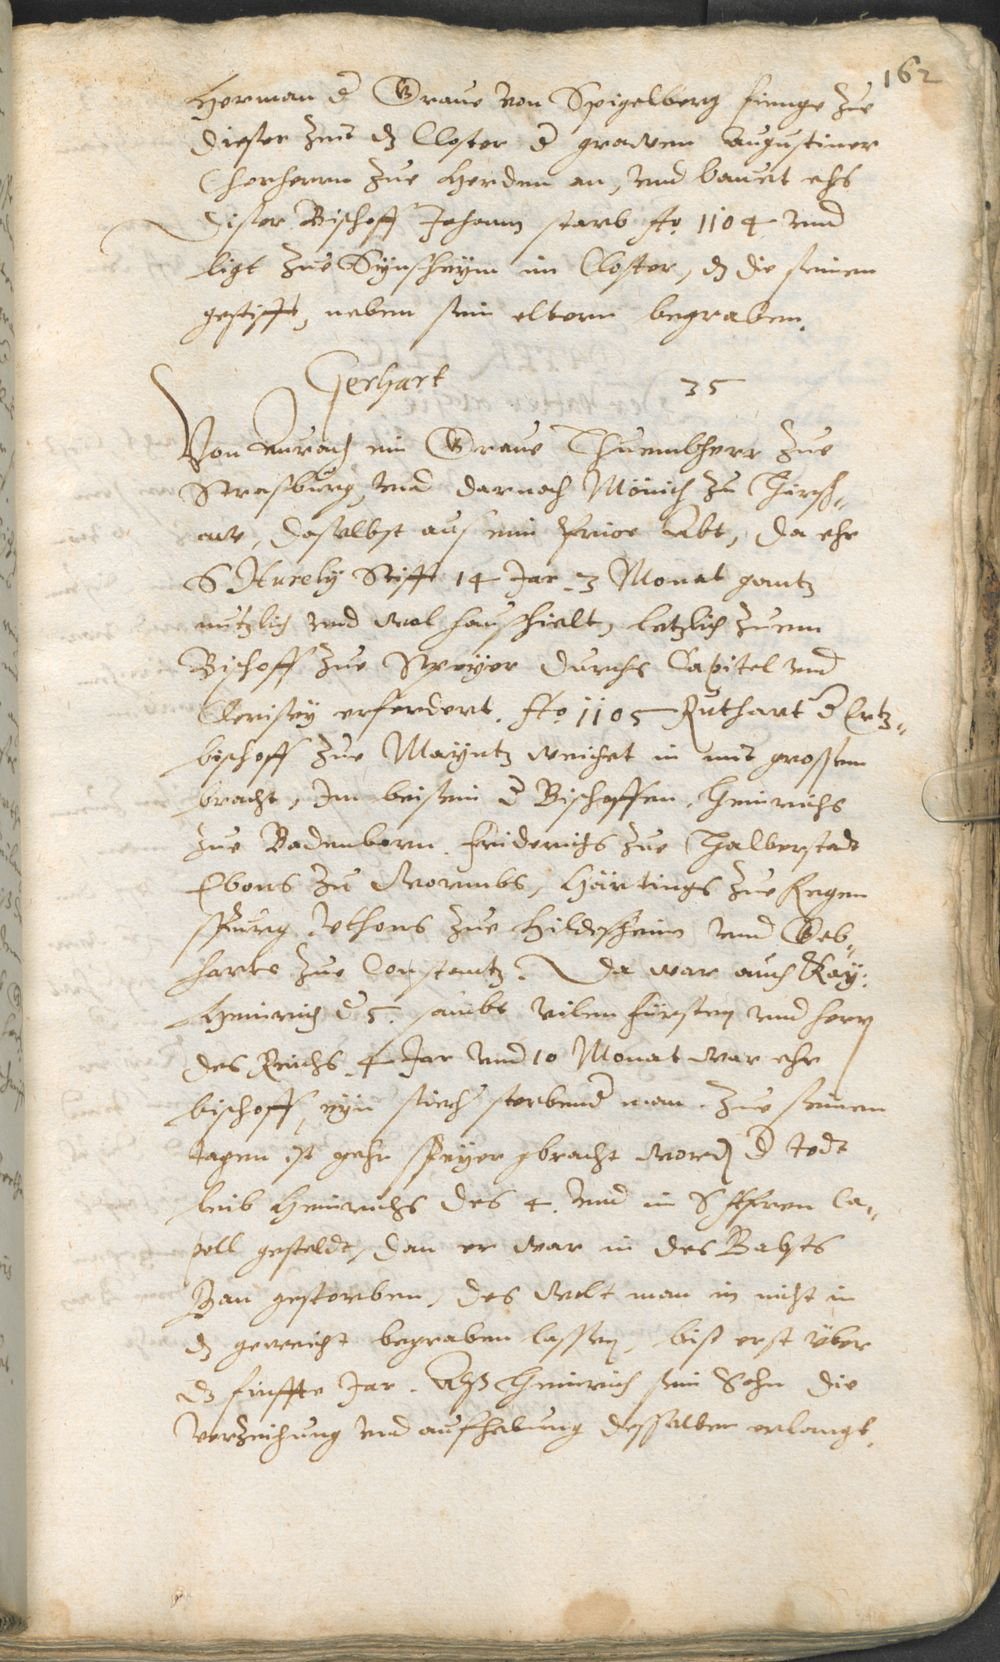 162
Herman d Graue von Spigelberg fienge zue
dieser zeit dz Closter d grawen Augustiner
Chorherrn zue Herden an, vnd bauet ehs
Diser Bischoff Johann starb Ao 1104 vnd
ligt zue Synsheym im Closter, dz die seinen
gestifft, neben sein eltern begraben.
Gerhart 35
Von Aurach ein Graue Thuembherr zue
Strasburg, vnd darnach Mönich zu Hirsch-
aw, daselbst aus ein Prior Abt, da ehr
S Aurely Stifft 14 Jar 3 Monat gantz
nutzlich vnd wol haushielt, letzlich zuem
Bischoff zue Speyer durchs Capitel vnd
Clerisey erfordert. Ao 1105 Ruthart d Ertz-
bischoff zue Mayntz weichet in mit grossem
bracht, Im beisein d Bischoffen, Heinrichs
zue Badenborn, Friderichs zue Halberstadt
Ebons zu Wormbs, Härtings zue Regen
spurg, Vthons zue Hildesheim vnd Geb-
harts zue Constantz. Da war auch Kay:
Heinrich d 5. sambt vilen fürsten vnd hern
des Reichs 4 Jar vnd 10 Monat war ehr
bischoff, eyn siech sterbend man. Zue seinen
tagen ist gehn Speyer gbracht word d todt
leib Heinrichs des 4. vnd in S Affren Ca-
pell gesteldt, dan er war in des Babsts
Ban gestorben, des wolt man in nicht in
dz geweicht begraben lassen, biß erst über
dz finffte Jar. Alß Heinrich sein Sohn die
verzeichung vnd aufhebung desselben erlangt.